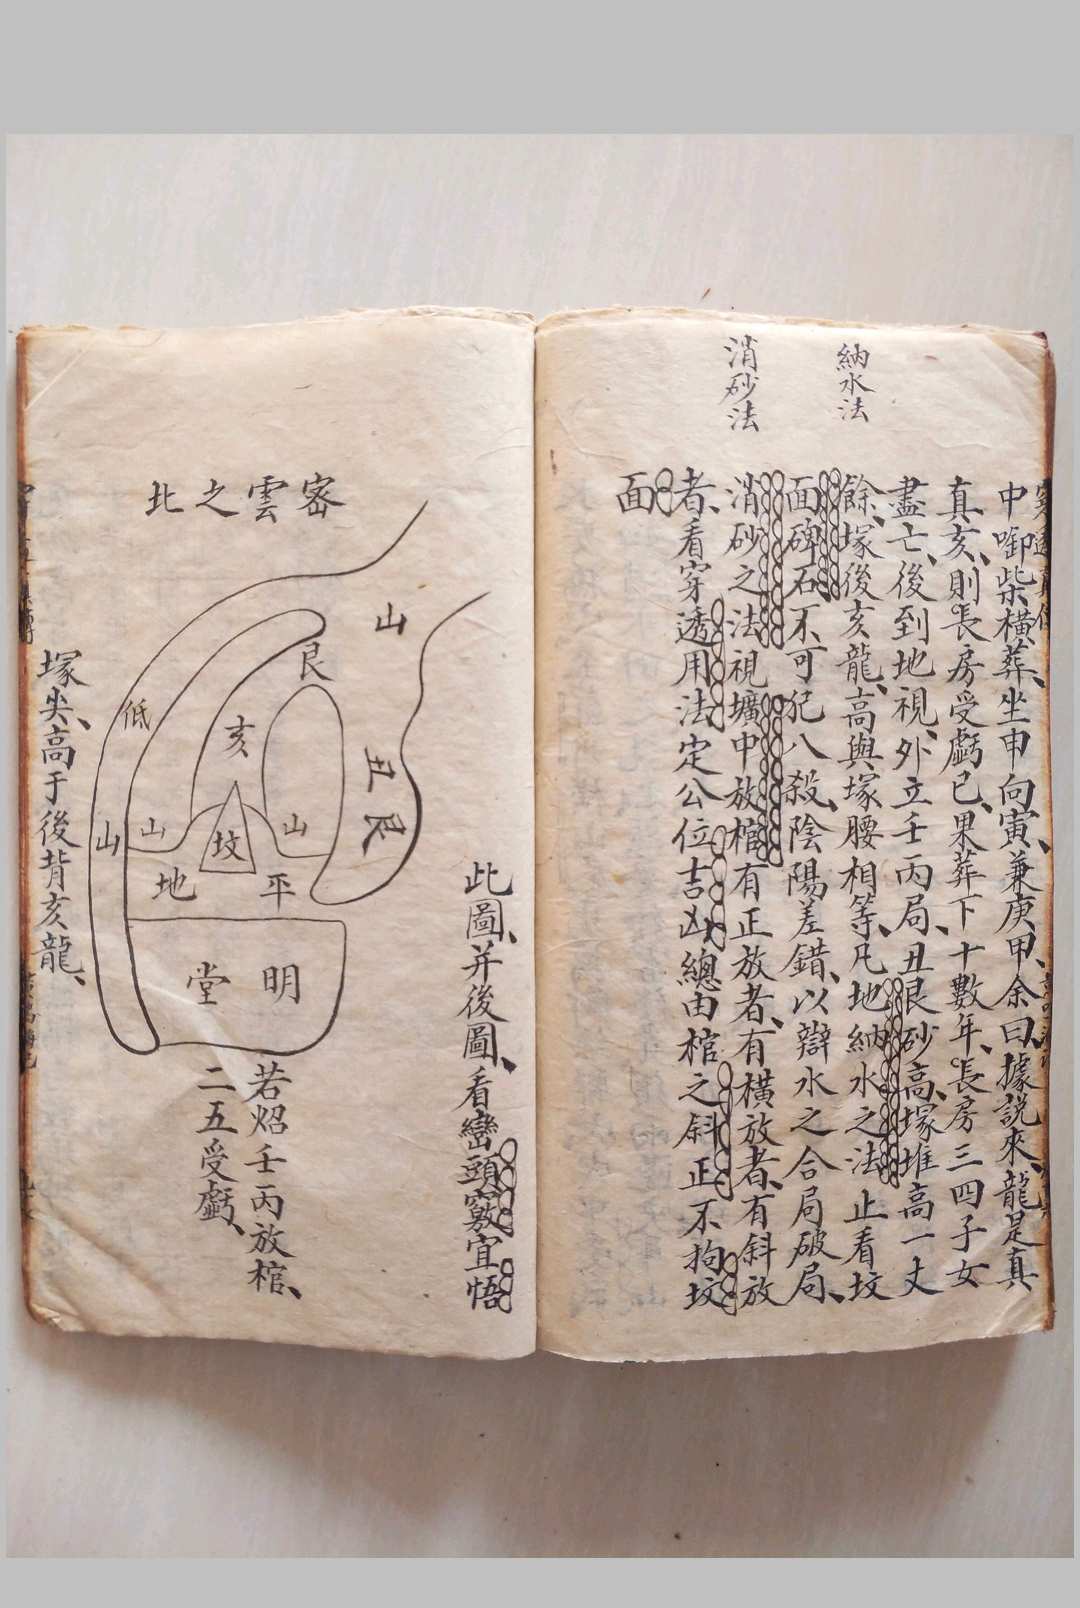 納水法
消砂法
中啣柴橫葬、坐申向寅、兼庚甲、余曰、據説來、龍是真
真亥、則長房受虧已、果葬下十數年、長房三四子女
盡亡、後到地視、外立壬丙局、丑艮砂高、塚堆高一丈
餘、塚後亥龍、高與塚腰相等、凡地納水之法、止看坟
面碑石、不可犯八殺、陰陽差錯、以辯水之合局破局、
消砂之法、視壙中放棺、有正放者、有橫放者、有斜放
者、看穿透用法、定公位吉凶、總由棺之斜正、不拘坟
面
此圖、并後圖、看巒頭竅宜悟
密雲之北
山
艮
亥
丑艮
低
山
山
坟
山
平地
明堂
若炤壬丙放棺、
二五受虧、
塚尖、高于後背亥龍、